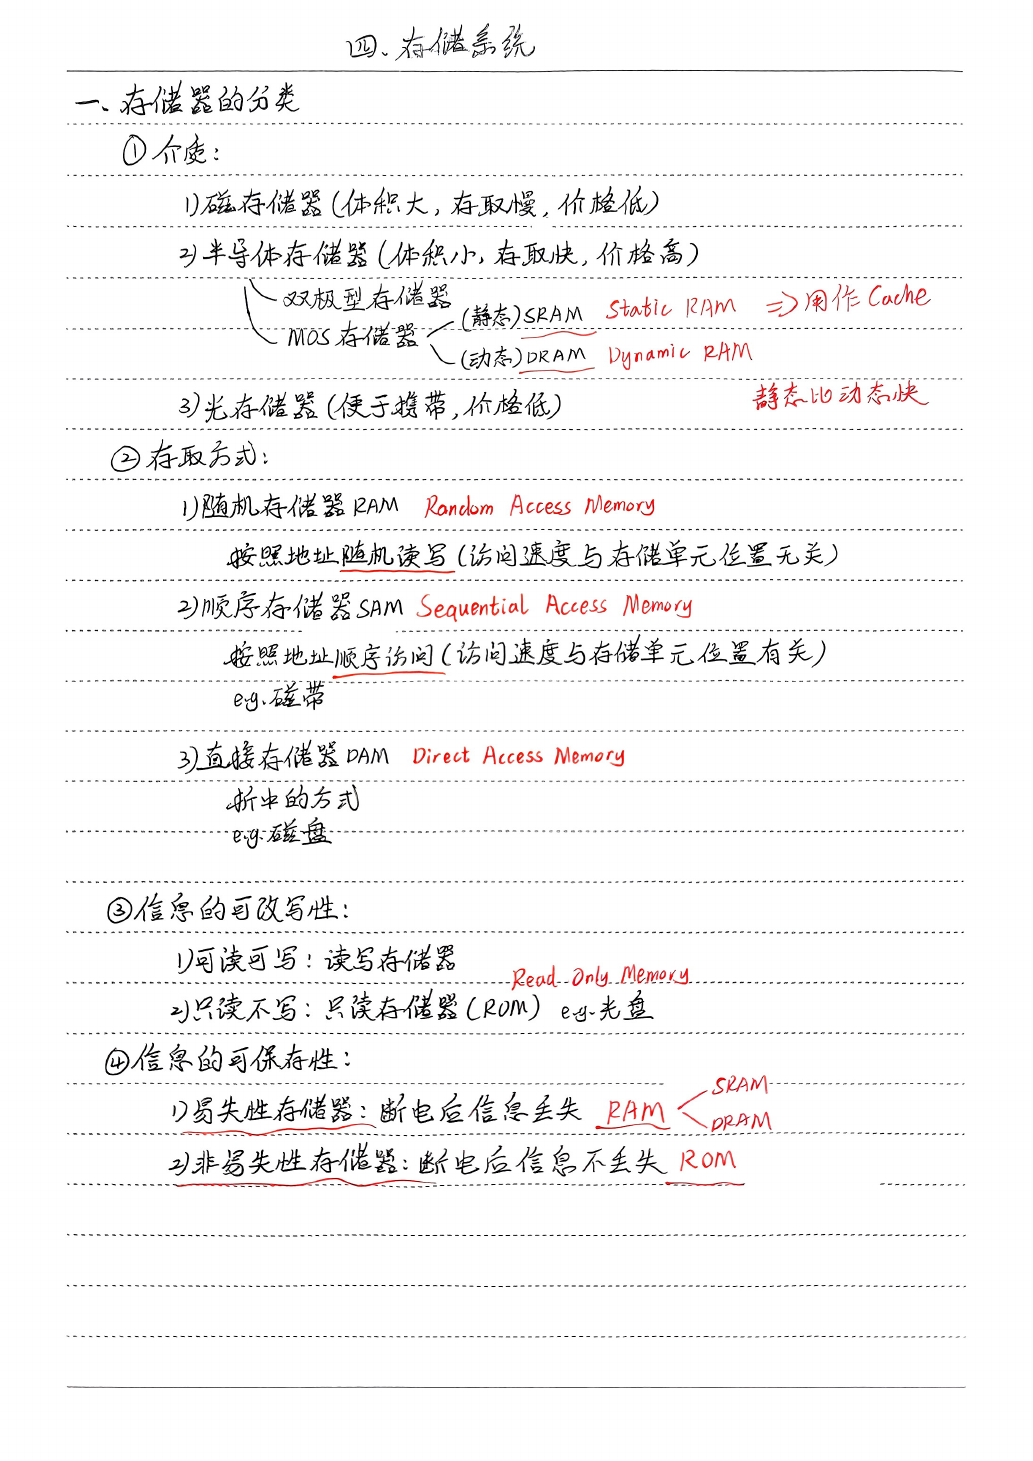 四、存储系统
一、存储器的分类
① 介质：
1)磁存储器(体积大，存取慢，价格低)
2)半导体存储器(体积小，存取快，价格高)
双极型存储器
MOS存储器
(静态)SRAM Static RAM ⇒用作Cache
(动态)DRAM Dynamic RAM
静态比动态快
3)光存储器(便于携带，价格低)
② 存取方式：
1)随机存储器RAM Random Access Memory
按照地址随机读写(访问速度与存储单元位置无关)
2)顺序存储器SAM Sequential Access Memory
按照地址顺序访问(访问速度与存储单元位置有关)
e.g.磁带
3)直接存储器DAM Direct Access Memory
折中的方式
e.g.磁盘
③信息的可改写性：
1)可读可写：读写存储器
Read Only Memory
2)只读不写：只读存储器(ROM) e.g.光盘
④信息的可保存性：
1)易失性存储器：断电后信息丢失 RAM
SRAM
DRAM
2)非易失性存储器：断电后信息不丢失 ROM